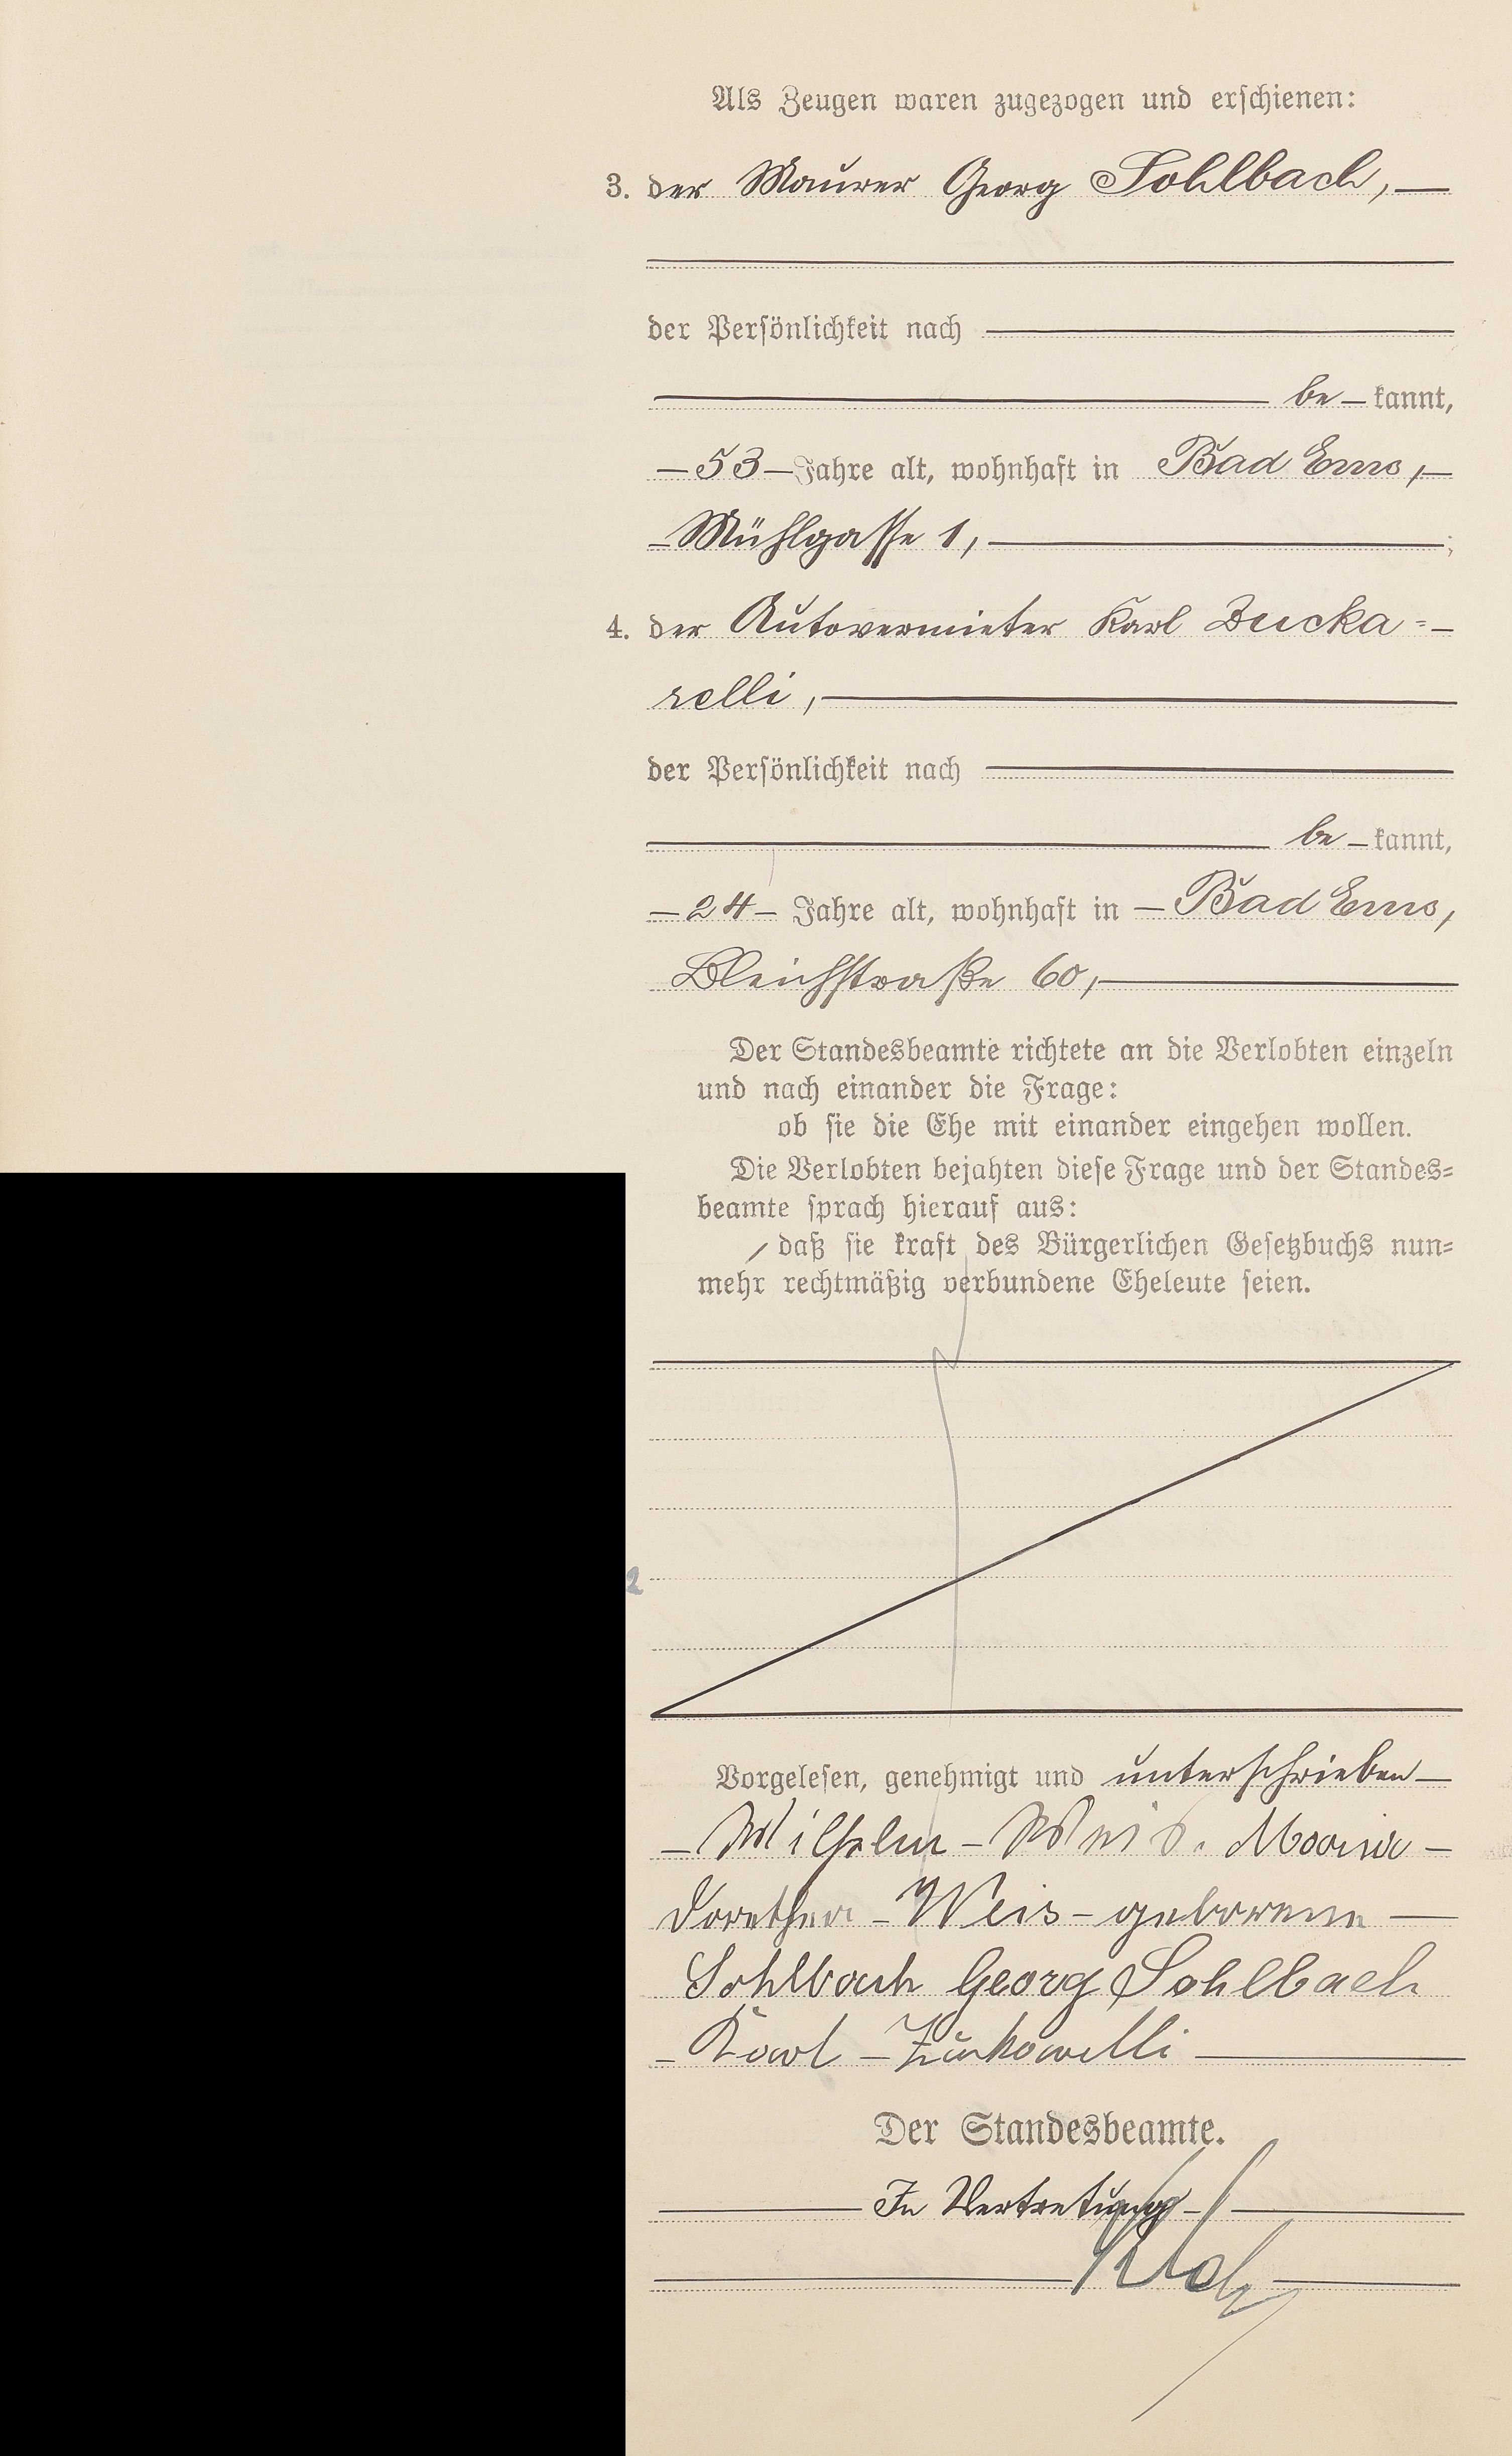 Als Zeugen waren zugezogen und erschienen:
3. der Maurer Georg Sohlbach, —
der Persönlichkeit nach
be — kannt,
— 53 — Jahre alt, wohnhaft in Bad Ems, —
Mühlgasse 1, ;
4. der Autovermieter Karl Zucka=
relli,
der Persönlichkeit nach
be — kannt,
— 24 — Jahre alt, wohnhaft in — Bad Ems,
Bleichstraße 60,
Der Standesbeamte richtete an die Verlobten einzeln
und nach einander die Frage:
ob sie die Ehe mit einander eingehen wollen.
Die Verlobten bejahten diese Frage und der Standes=
beamte sprach hierauf aus:
daß sie kraft des Bürgerlichen Gesetzbuchs nun=
mehr rechtmäßig verbundene Eheleute seien.
2
Vorgelesen, genehmigt und unterschrieben —
— Wilhelm — Weis. Maria —
Dorothea — Weis — geborene —
Sohlbach Georg Sohlbach
— Karl — Zuckarelli
Der Standesbeamte.
In Vertretung